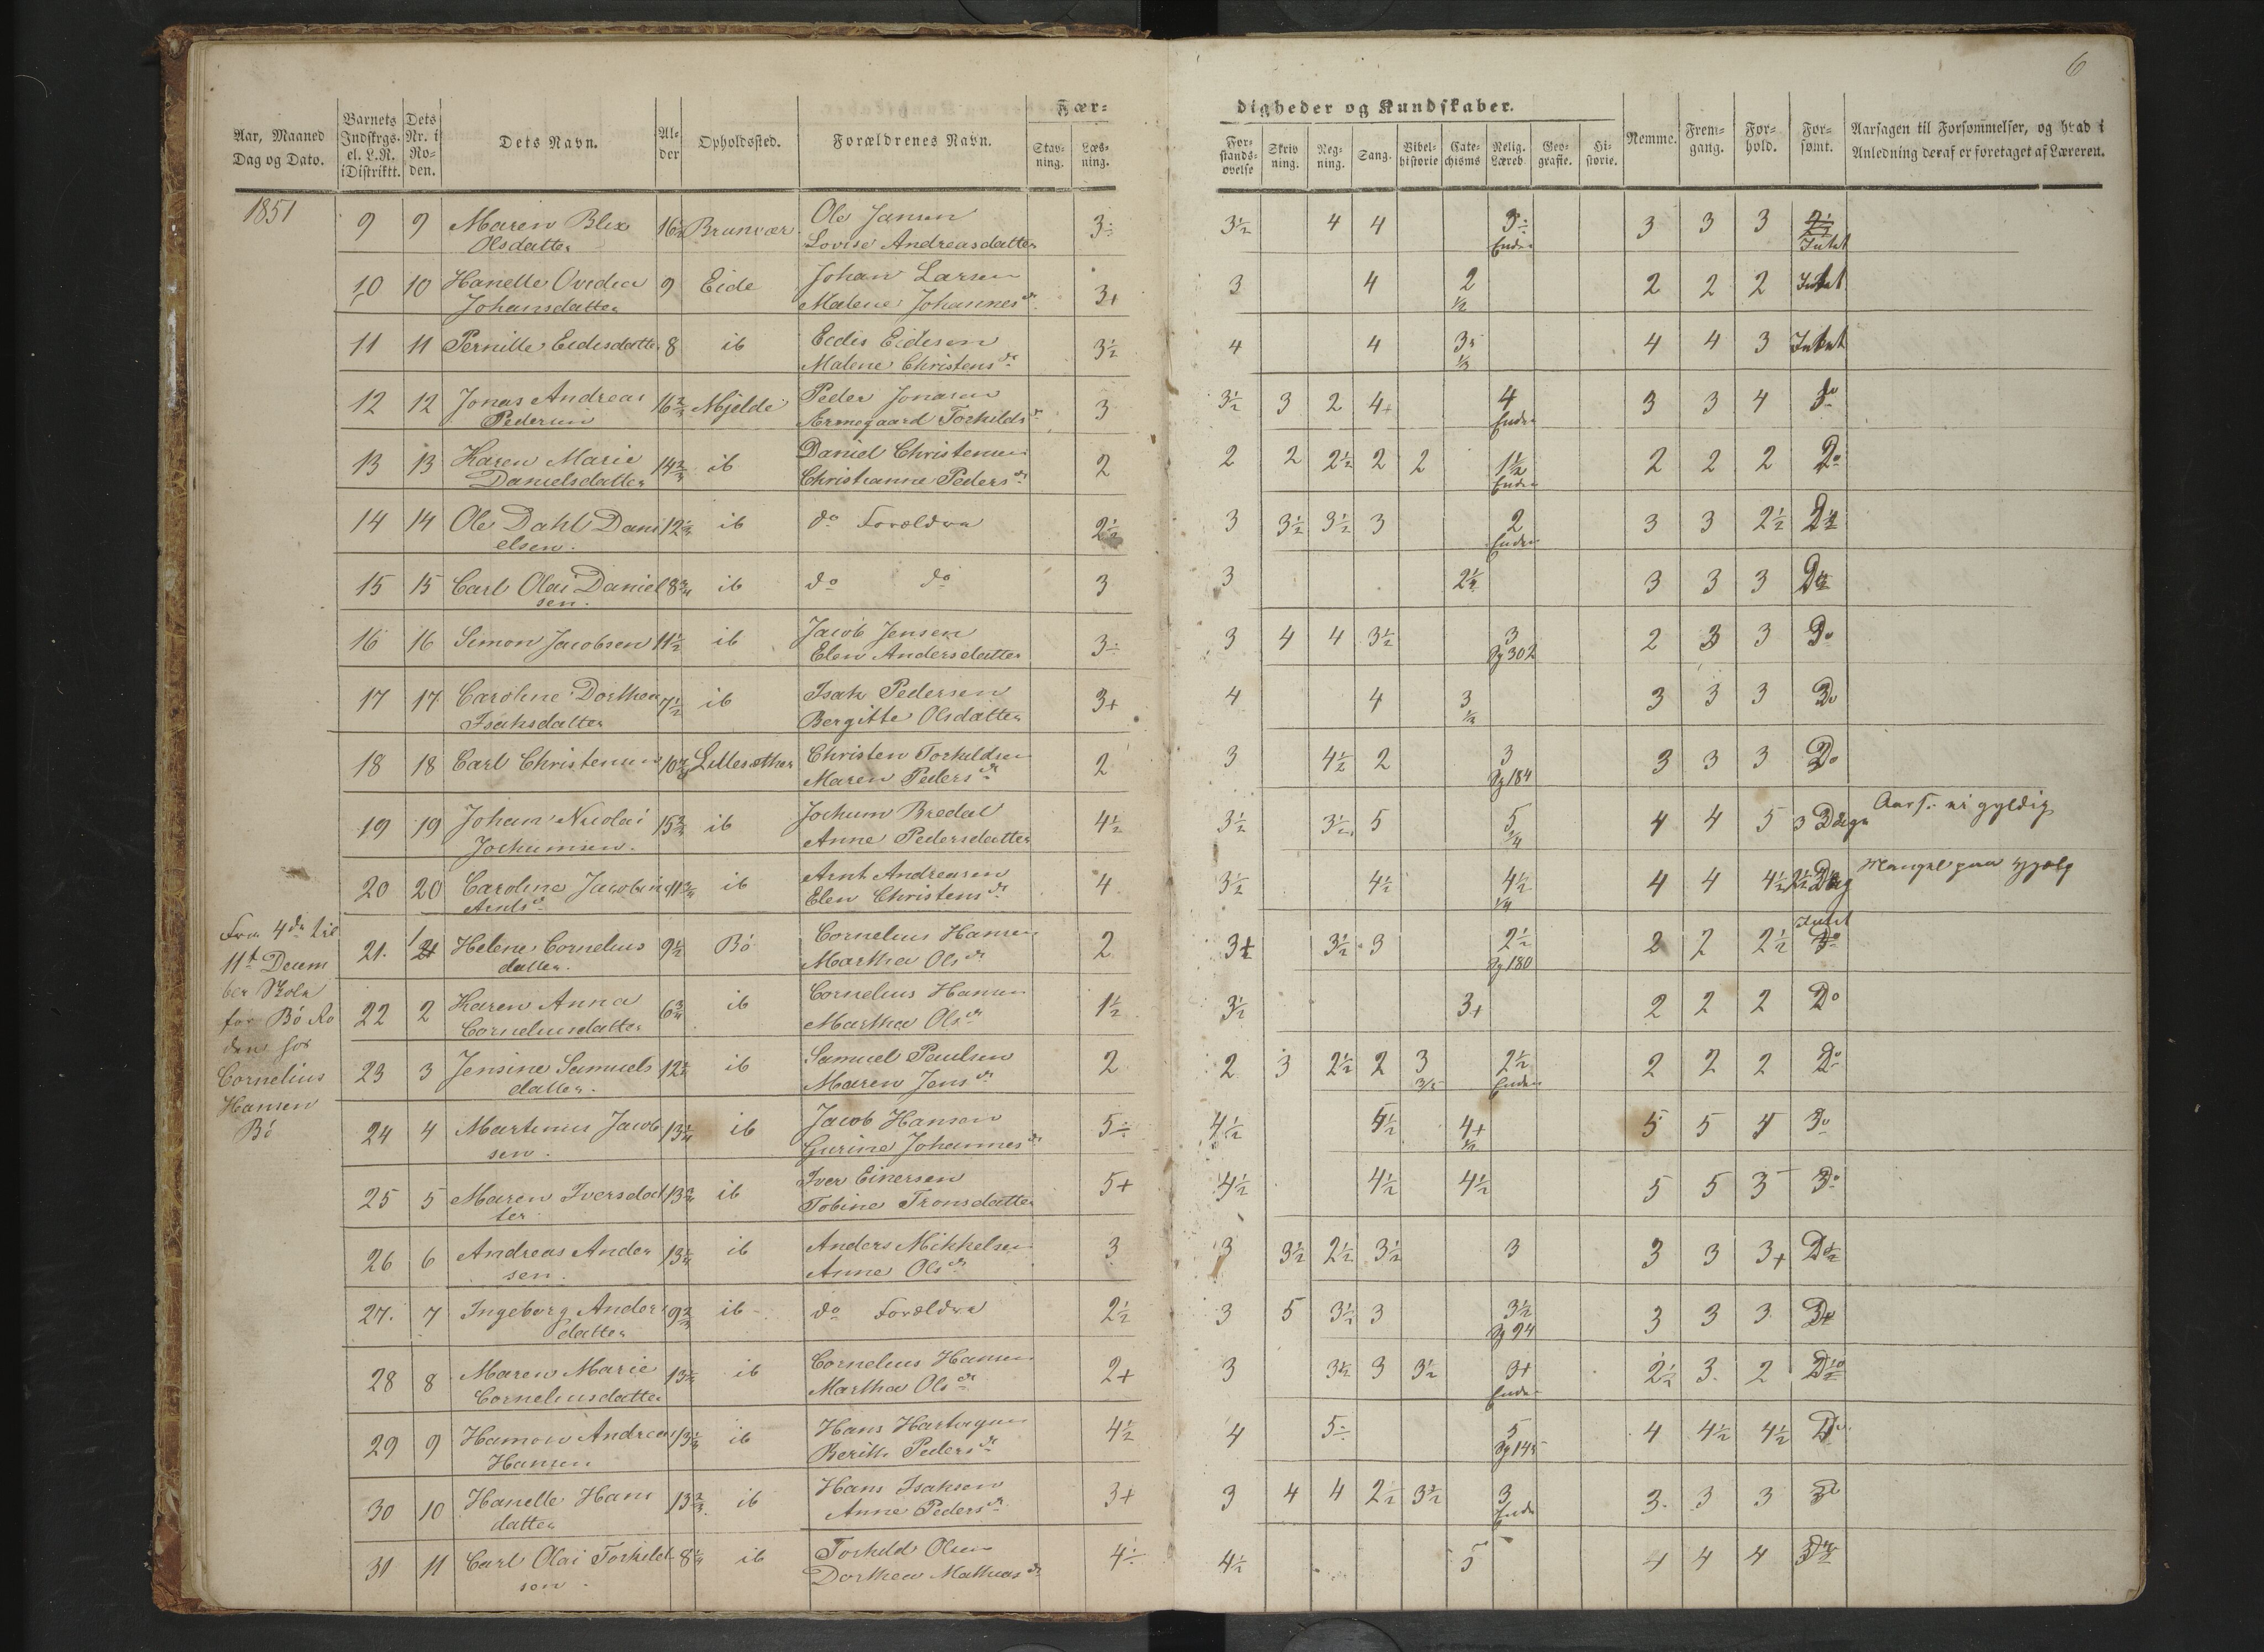 6
Fær=
digheder og Kundskaber.
Aar, Maaned Dag og Dato.
Barnets Indskrgs. el. L.N. i Distriktt.
Dets Nr. i Ro= den.
Dets Navn.
Al= der
Opholdssted.
Forældrenes Navn.
Stav= ning.
Læs= ning.
For= stands= øvelse
Skriv ning.
Reg= ning.
Sang.
Bibel= historie
Cate= chisms
Relig. Læreb.
Geo= grafie.
Hi= storie.
Nemme.
Frem= gang.
For= hold.
For= sømt.
Aarsagen til Forsømmelser, og hvad i Anledning deraf er foretaget af Læreren.
1851
9 9 Maren Blix 16½ Brunvær Ole Jansen 3÷ 3½ 4 4 3÷ 3 3 3
Olsdatter Lovise Andreasdatter Enden Intet
10 10 Hanelle Ovedia 9 Eide Johan Larsen 3+ 3 4 2 2 2 2 Intet
Johansdatter Malene Johannesdr ½
11 11 Pernille Eidisdatte 8 ib Eidis Eidisen 3½ 4 4 3 4 4 3 Intet
Malene Christensdr ⅓
12 12 Jonas Andreas 16⅔ Mjelde Peder Jonasen 3 3½ 3 2 4+ 4 3 3 4 Do
Pedersen Armegaard Torkildsdr Enden
13 13 Karen Marie 14⅔ ib Daniel Christensen 2 2 2 2½ 2 2 1½ 2 2 2 Do
Danielsdatter Christianne Pedersdr Enden
14 14 Ole Dahl Dani 12⅓ ib do Forældre 2½ 3 3½ 3½ 3 2 3 3 2½ Do
elsen. Enden
15 15 Carl Olai Daniel 8¾ ib do do 3 3 2½ 3 3 3 Do
sen.
16 16 Simon Jacobsen 11½ ib Jacob Jensen 3÷ 3 4 4 3½ 3 2 3 3 Do
Elen Andersdatter Pg 302
17 17 Caroline Dorthea 7½ ib Isak Pedersen 3+ 4 4 3 3 3 3 Do
Isaksdatter Bergitte Olsdatter
18 18 Carl Christensen Lillesother Christen Torkildsen 2 3 4½ 2 3 3 3 3 Do
Maren Pedersdr Pg 184
19 19 Johan Nicolai 15⅔ ib Jochum Bredal 4½ 3½ 3½ 5 5 4 4 5 3 Dage Aars. ei gyldig
Jochumsen. Anne Pedersdatter ¼
20 20 Caroline Jacobine 11¾ ib Arnt Andreasen 4 3½ 4½ 4½ 4 4 4½ Dag Mangel paa Hjælp
Arntsdr Elen Christensdr ¼
Fra 4de til
11te Decem
ber Skole
for Bö Ro
den hos
Cornelius
Hansen
Bö
21. 1 Helene Cornelius 9½ Bö Cornelius Hansen 2 3+ 3½ 3 2½ 2 2 2½ Intet
datter. Martha Olsdr Pg 180
22 2 Karen Anna 6¾ ib Cornelius Hansen 1½ 3½ 3+ 2 2 2 Do
Corneliusdatter Martha Olsdr
23 3 Jensine Samuels 12¼ ib Samuel Paulsen 2 2 3 2½ 2 3 2½ 2 2 2 Do
datter. Maren Jensdr Enden
24 4 Martinus Jacob 13¼ ib Jacob Hansen 5÷ 4½ 4½ 4+ 5 5 4 Do
sen. Gurine Johannesdr ½
25 5 Maren Iversdat 13¾ ib Iver Einersen 5+ 4½ 4½ 4½ 5 5 3 Do
ter Tobine Tronsdatter
26 6 Andreas Ander 13¼ ib Anders Mikkelsen 3 3 3½ 2½ 3½ 3 3 3 3+ Do
sen. Anne Olsdr
27. 7 Ingeborg Anders 9⅔ ib do Forældre 2½ 3 5 3½ 3 3½ 3 3 3 Do
datter Pg 94
28 8 Maren Marie ib Cornelius Hansen 2+ 3 3½ 3 3½ 3+ 2½ 3 2 Do
Corneliusdatter Martha Olsdr Enden
29 9 Hamon Andreas 13⅓ ib Hans Hartvigsen 4½ 4 5÷ 5 4 4½ 4½ Do
Hansen Berith Pedersdr Pg 145
30 10 Hanelle Hans 13⅔ ib Hans Isaksen 3+ 3 4 4 2½ 3½ 3 3 3 3 Do
datter Anne Pedersdr Enden
31 11 Carl Olai Torkild 8¼ ib Torkild Olsen 4÷ 4½ 5 4 4 4 Do
sen. Dorthea Mathiasdr